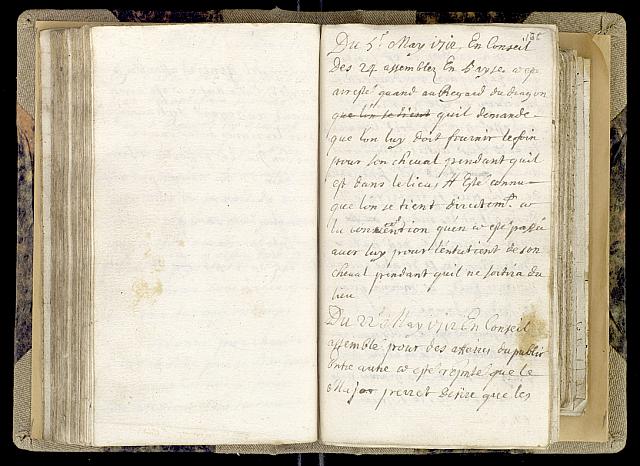 Du 5.r May 1712 En Conseil
Des 24 assemblez En
arresté quand au Regard du dragon
que lon se tient quil demande
que lon luy doit fournir le foin
pour son cheual pendant quil
est dans le lieu, A Esté connu
que lon se tient directem.t
la convention quen esté passée
auec luy pour lentretient de son
cheual pendant quil ne sortira du
lieu
Du 22 May 1712 En Conseil
assemblé pour des affaires du public
Entre autre esté que le
Major perret desire que les